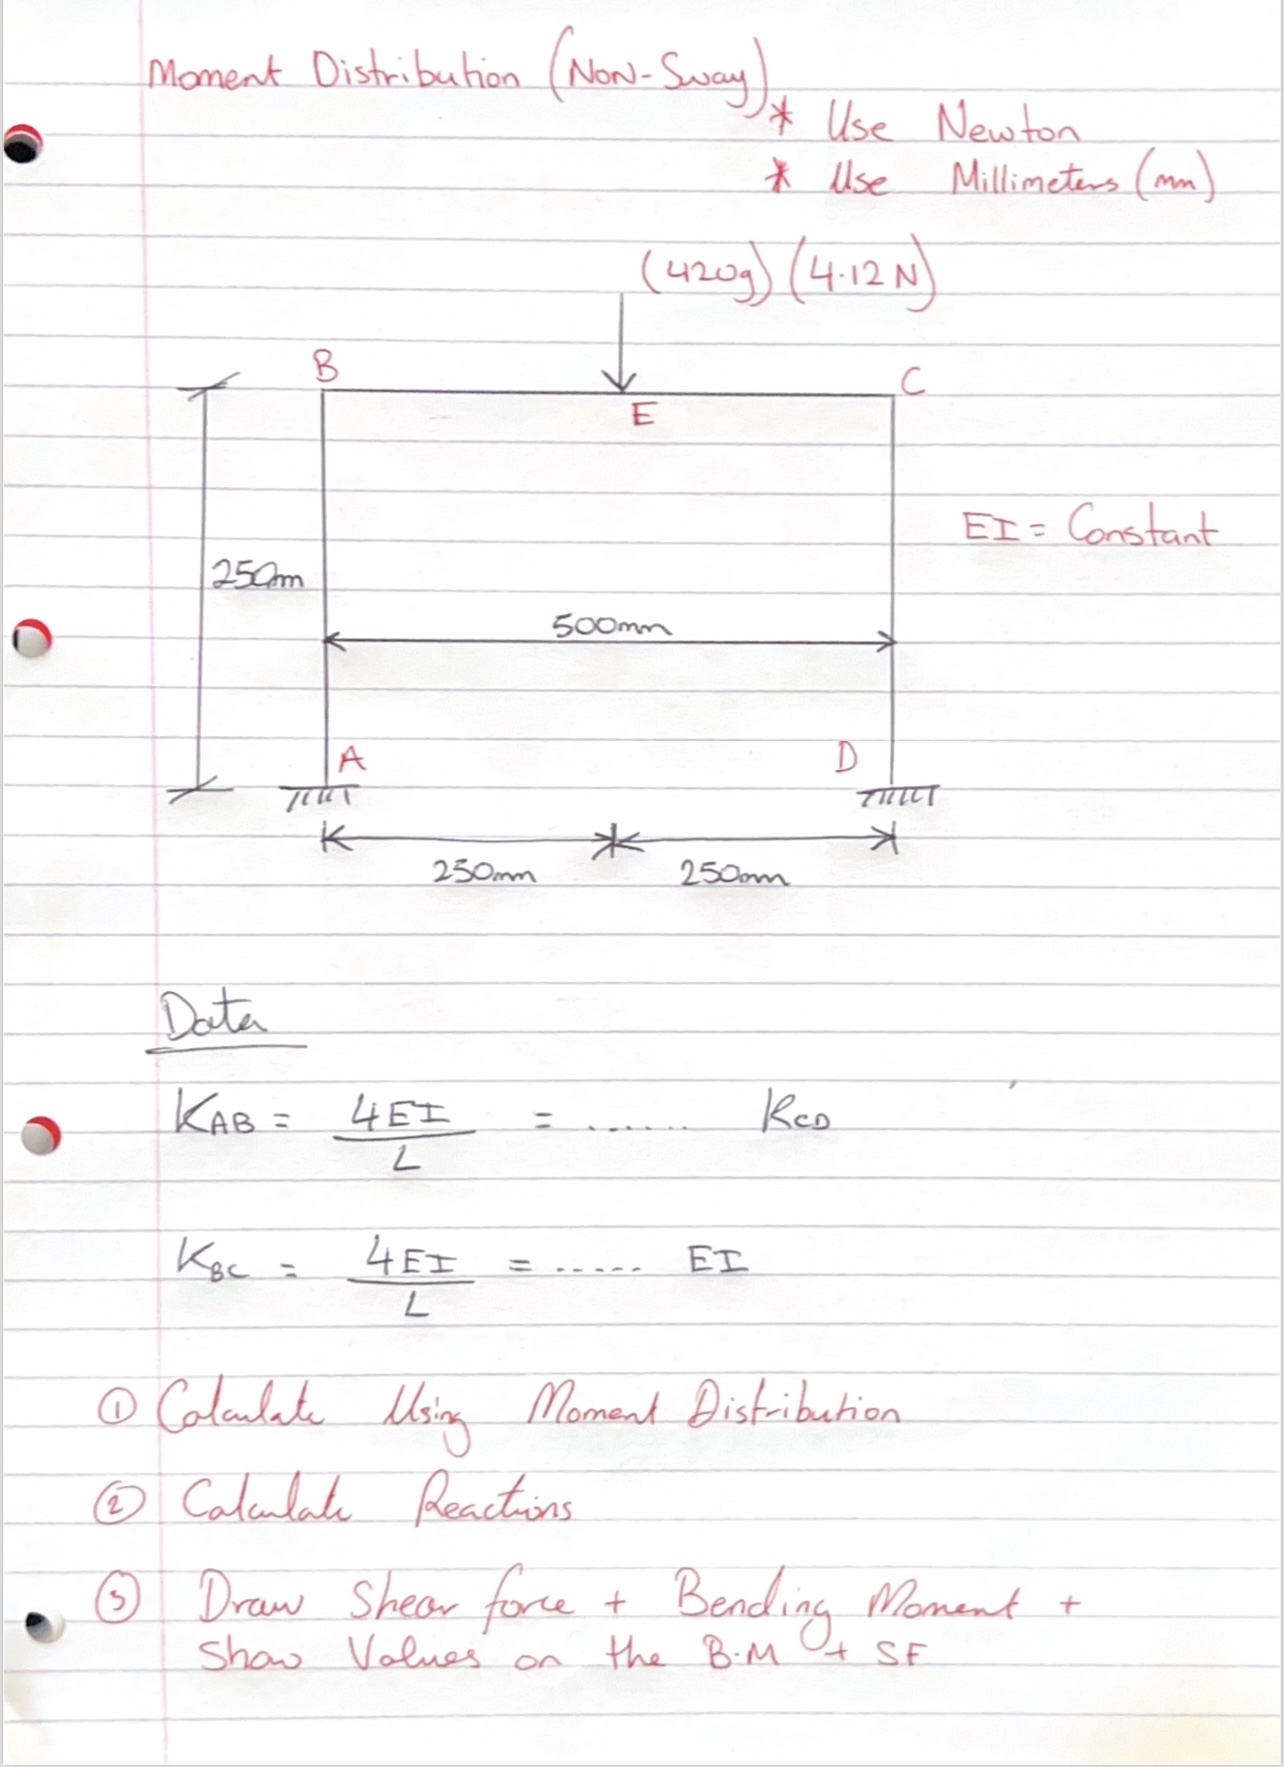 Moment Distribution (Non-Sway)
* Use Newton
* Use Millimeters (mm)
(420g) (4.12N)
B
C
E
EI = Constant
250m
500mm
A
D
250mm 250mm
Data
KAB = 4EI/L = ...... KCD
KBC = 4EI/L = ...... EI
① Calculate Using Moment Distribution
② Calculate Reactions
③ Draw Shear force + Bending Moment +
Show Values on the B.M + SF